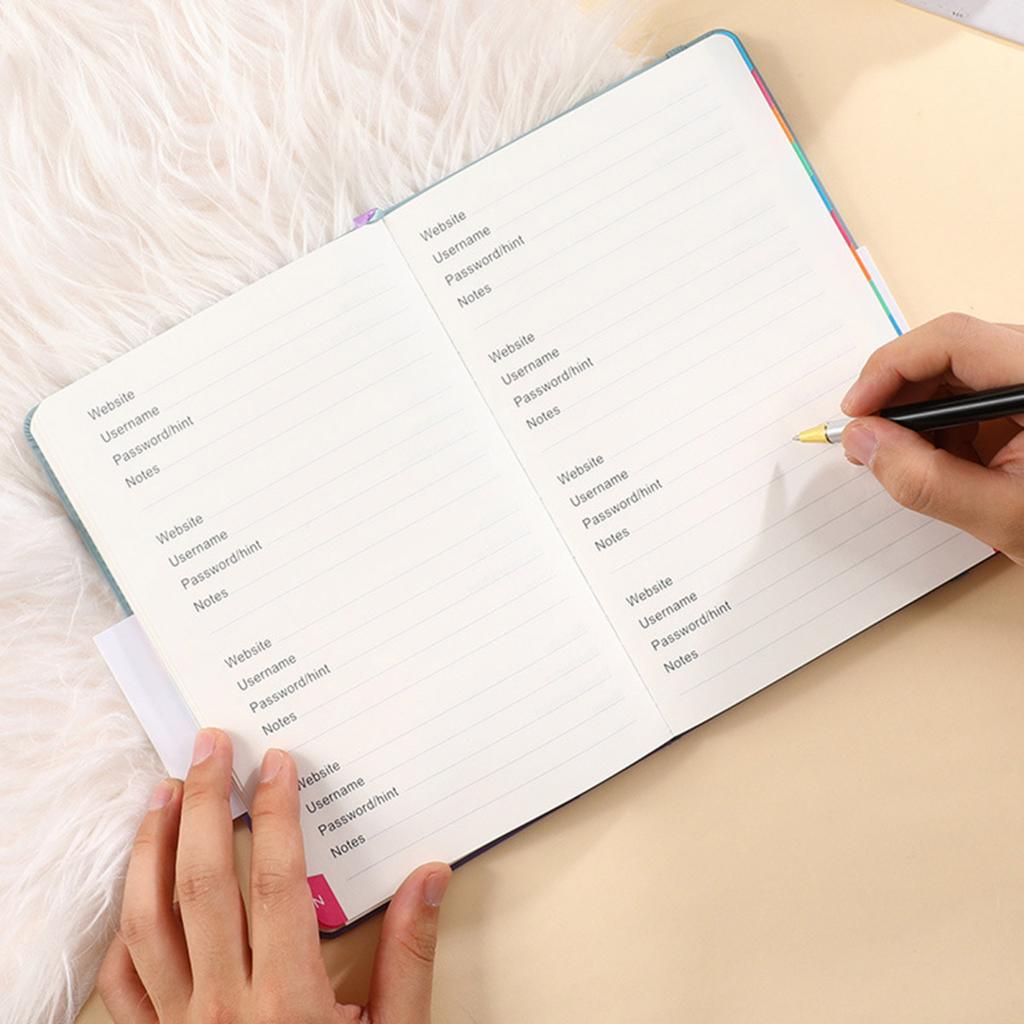 Website
Username
Password/hint
Notes
Website
Username
Password/hint
Notes
Website
Username
Password/hint
Notes
Website
Username
Password/hint
Notes
N
Website
Username
Password/hint
Notes
Website
Username
Password/hint
Notes
Website
Username
Password/hint
Notes
Website
Username
Password/hint
Notes